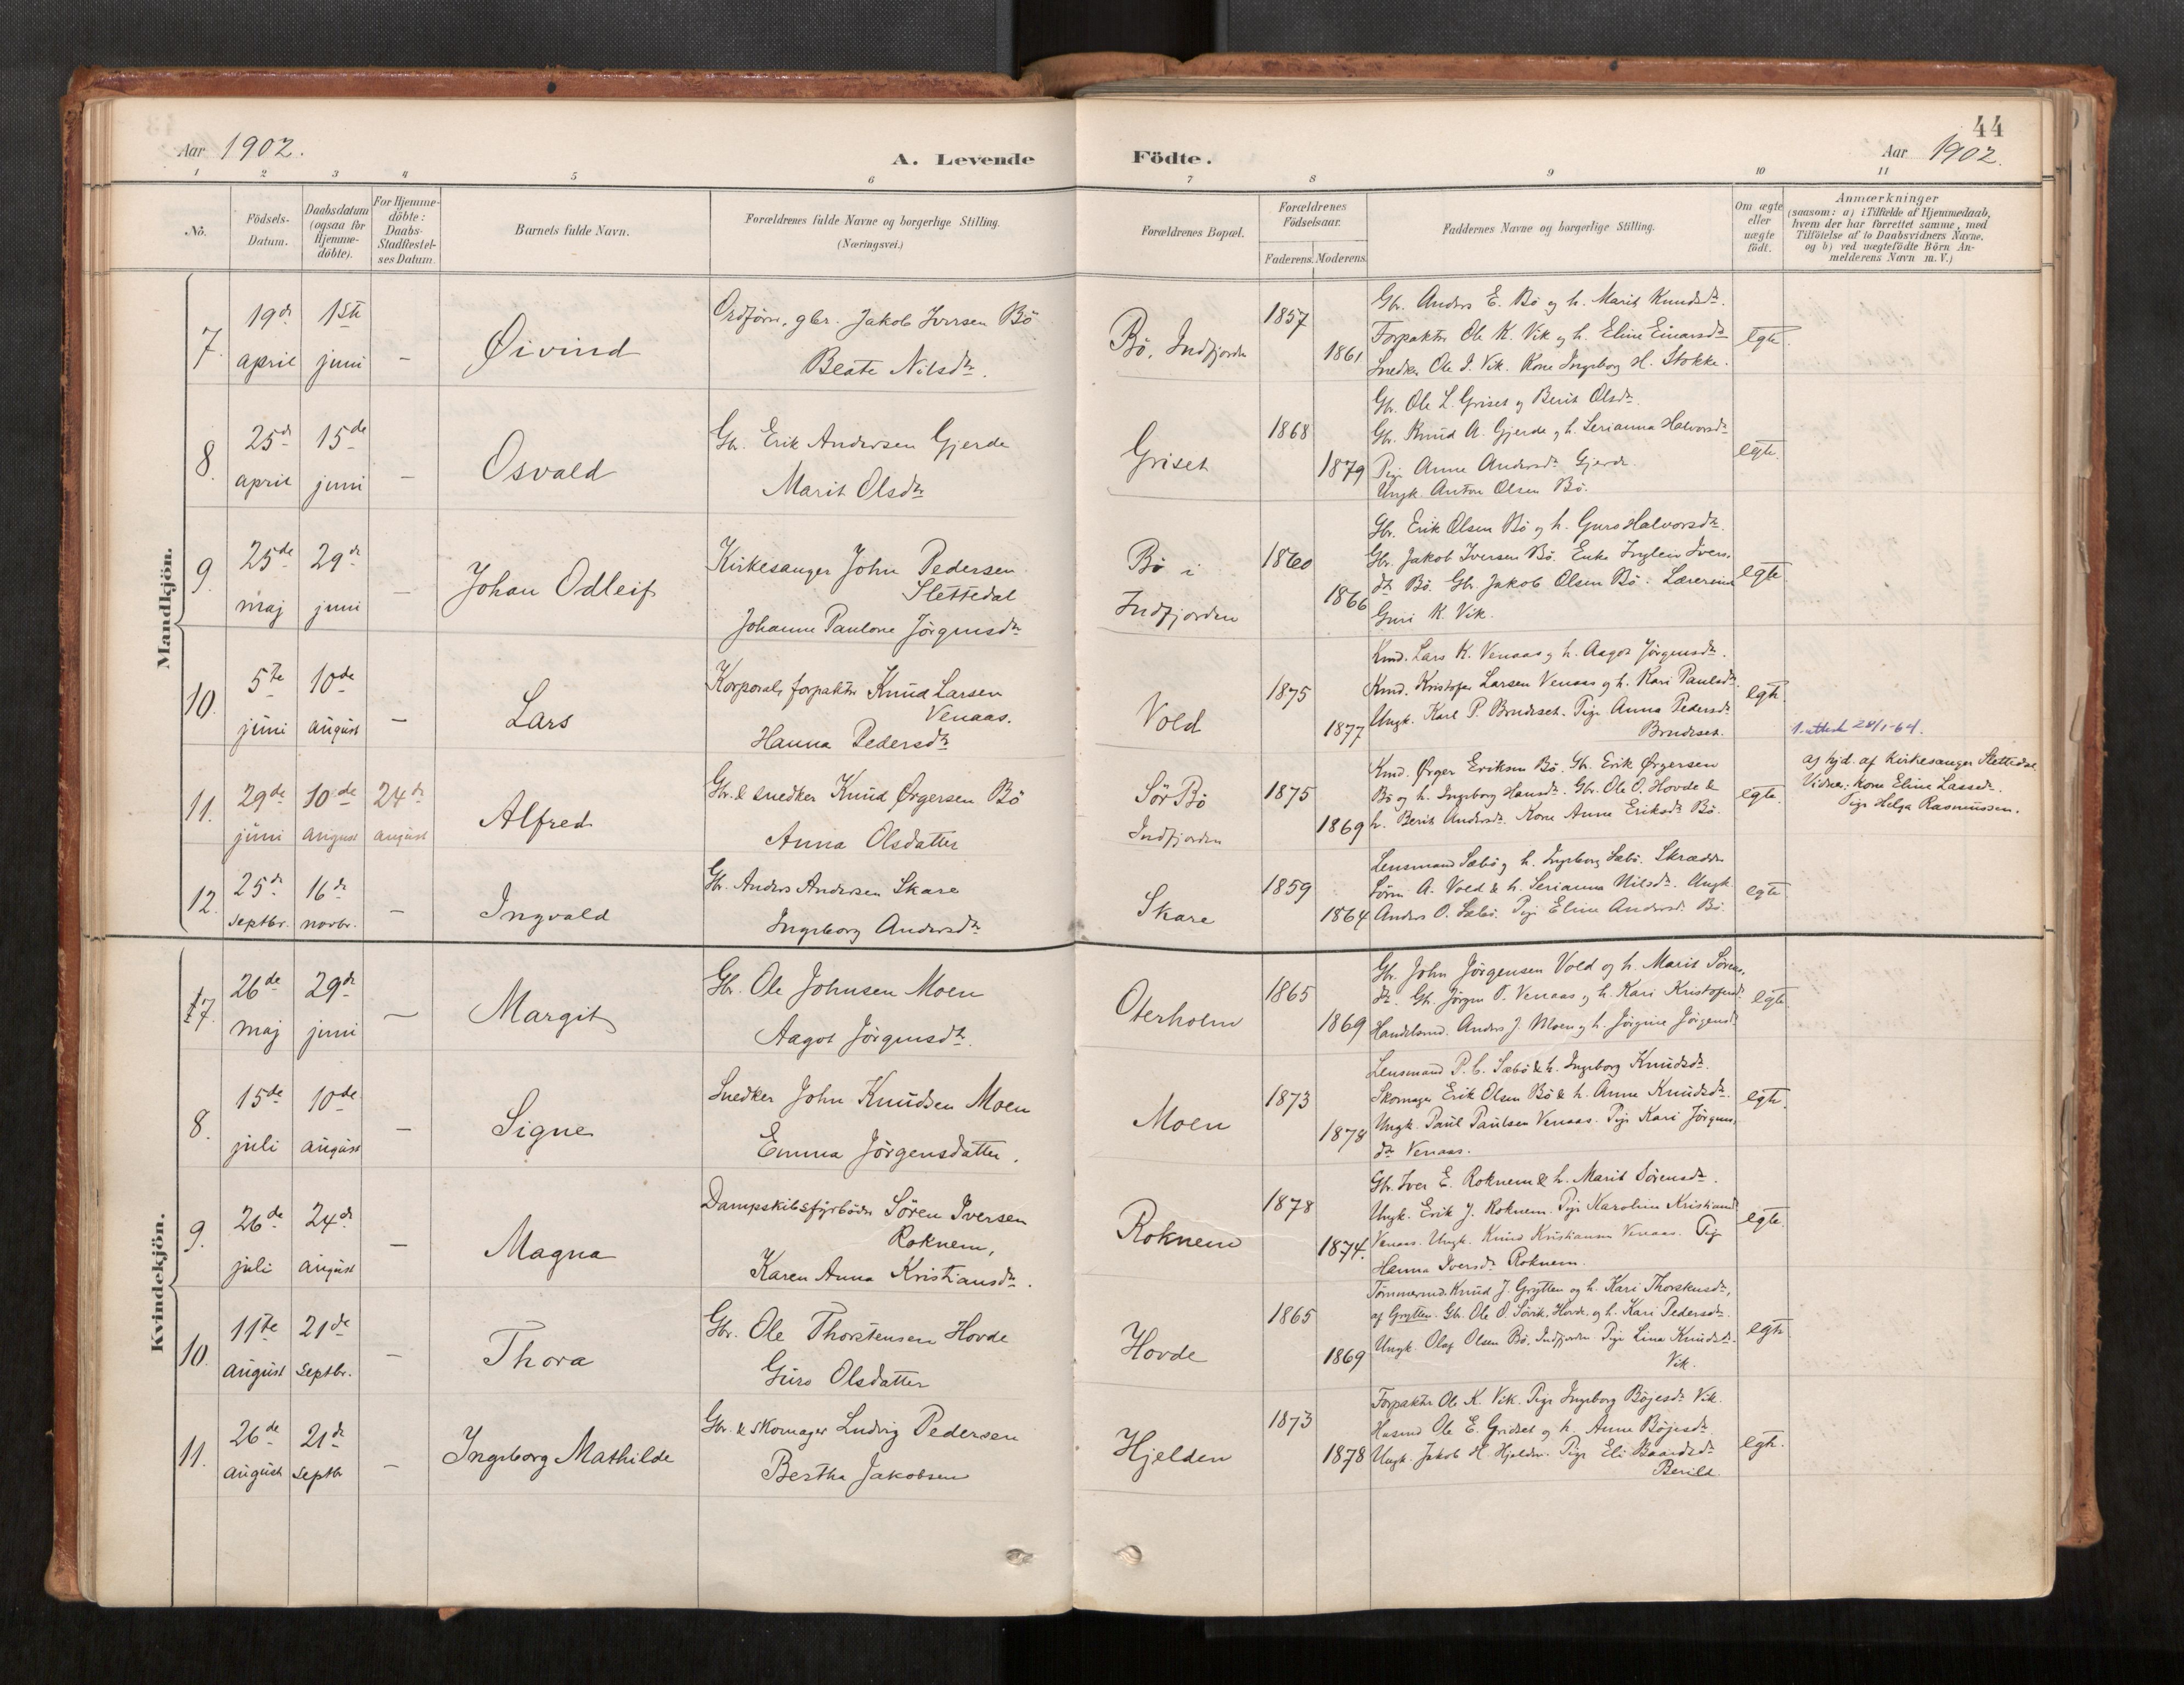 44
Aar 1902.
A. Levende
Födte.
Aar 1902.
1 2 3 4 5 6 7 8 9 10 11
No.
Födsels-Datum.
Daabsdatum (ogsaa for Hjemme-döbte).
For Hjemme-döbte: Daabs-Stadfæstel-ses Datum.
Barnets fulde Navn.
Forældrenes fulde Navne og borgerlige Stilling.
(Næringsvei.)
Forældrenes Bopæl.
Forældrenes Födselsaar.
Faderens. Moderens.
Faddernes Navne og borgerlige Stilling.
Om ægte eller uægte födt.
Anmærkninger
(saasom: a) i Tilfælde af Hjemmedaab,
hvem der har forrettet samme, med
Tilföielse af to Daabsvidners Navne,
og b) ved uægtefödte Börn An-
melderens Navn m. V.)
Mandkjön.
7. 19de april 1ste juni - Øivind
Ordförer, gbr. Jakob Iversen Bö
Beate Nilsdtr.
Bö, Indfjorden 1857 1861
Gbr. Anders E. Bö og h. Marit Knudsdtr.
Forpakter Ole K. Vik og h. Eline Einarsdtr
Snedker Ole J. Vik. Kone Ingeborg H. Stokke.
egte.
8. 25de april 15de juni - Osvald
Gbr. Erik Andersen Gjerde
Marit Olsdtr
Griset 1868 1879
Gbr. Ole L. Griset og Berit Olsdtr.
Gbr. Knud A. Gjerde og h. Serianna Halvorsdtr
Pige Anne Andersdtr Gjerde.
Ungk. Anton Olsen Bö.
egte.
9. 25de maj 29de juni - Johan Odleif
Kirkesanger John Pedersen
Slettedal
Johanne Pauline Jörgensdtr
Bö i Indfjorden 1860 1866
Gbr. Erik Olsen Bö og h. Guro Halvorsdtr.
Gbr. Jakob Iversen Bö. Enke Ingleiv Ivers-
dtr Bö. Gbr. Jakob Olsen Bö. Lærerinde
Guri K. Vik.
egte
10. 5te juni 10de august - Lars
Korporal, forpakter Knud Larsen
Venaas.
Hanna Pedersdtr
Vold 1875 1877
Kmd. Lars K. Venaas og h. Aagot Jörgensdtr.
Kmd. Kristofer Larsen Venaas og h. Kari Paulsdtr
Ungk. Karl P. Brudeset. Pige Anna Pedersdtr
Brudeset.
egte.
1. attest 28/1-64.
11. 29de juni 10de august 24de august Alfred
Gbr. & snedker Knud Ørgersen Bö
Anna Olsdatter
Sör Bö Indfjorden 1875 1869
Kmd. Ørger Eriksen Bö. Gbr. Erik Ørgersen
Bö og h. Ingeborg Hansdtr. Gbr. Ole O. Hovde &
h. Berit Andersdtr. Kone Anne Eriksdtr Bö.
egte.
a) hjd. af Kirkesanger Slettedal
Vidner: Kone Eline Lassedtr.
Pige Helga Rasmussen.
12. 25de septbr. 16de novbr. - Ingvald
Gbr. Anders Andersen Skare
Ingeborg Andersdtr
Skare 1859 1864
Lensmand Sæbö og h. Ingeborg Sæbö. Skrædder
Sören A. Vold & h. Serianna Nilsdtr. Ungk.
Anders O. Sæbö. Pige Eline Andersdtr Bö.
egte
Kvindekjön.
7. 26de maj 29de juni - Margit
Gbr. Ole Johnsen Moen
Aagot Jörgensdtr.
Oterholm 1865 1869
Gbr. John Jörgensen Vold og h. Marit Sörens-
dtr. Gbr. Jörgen P. Venaas og h. Kari Kristofersdtr
Handelsmd. Anders J. Moen og h. Jörgine Jörgensdtr
egte
8. 15de juli 10de august - Signe
Snedker John Knudsen Moen
Emma Jörgensdatter.
Moen 1873 1878
Lensmand P. C. Sæbö & h. Ingeborg Knudsdtr.
Skomager Erik Olsen Bö & h. Anne Knudsdtr.
Ungk. Paul Paulsen Venaas. Pige Kari Jörgens-
dtr Venaas.
egte.
9. 26de juli 24de august - Magna
Dampskibsfyrböder Sören Iversen
Roknem,
Karen Anna Kristiansdtr.
Roknem 1878 1874.
Gbr. Iver E. Roknem & h. Marit Sörensdtr.
Ungk. Erik J. Roknem. Pige Karoline Kristiansd
Venaas. Ungk. Knud Kristiansen Venaas. Pige
Hanna Iversdtr Roknem.
egte.
10. 11te august 21de septbr. - Thora
Gbr. Ole Thorstensen Hovde
Guro Olsdatter
Hovde 1865 1869
Tömmermd. Knud J. Grytten og h. Kari Thorstensdtr,
af Grytten. Gbr. Ole O. Sörvik, Hovde, og h. Kari Pedersdtr.
Ungk. Olaf Olsen Bö, Indfjorden. Pige Lina Knudsdtr
Vik.
egte.
11. 26de august 21de septbr - Ingeborg Mathilde
Gbr. & skomager Ludvig Pedersen
Bertha Jakobsen
Hjelden 1873 1878
Forpakter Ole K. Vik. Pige Ingeborg Böjesdtr Vik.
Husmd Ole E. Gridset og h. Anne Böjesdtr.
Ungk. Jakob H. Hjelden. Pige Eli Baardsdtr
Berild.
egte.